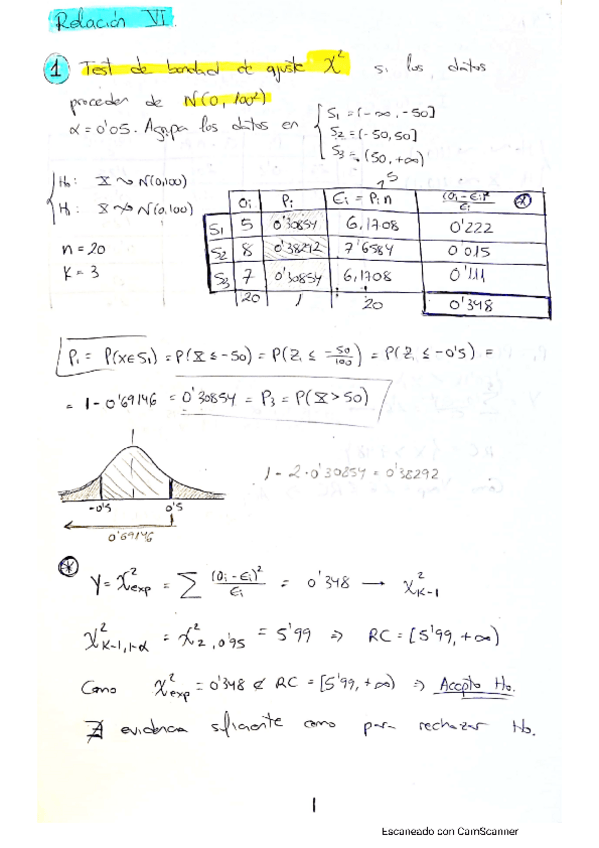 Relación VI.
1 Test de bondad de ajuste χ² si los datos
proceden de N(0, 100²)
α = 0'05. Agrupa los datos en
S1 = (-∞, -50]
S2 = (-50, 50]
S3 = (50, +∞)
H0: X ~> N(0,100)
H1: X ≁> N(0,100)
n = 20
K = 3
Oi Pi Ei = Pi n (Oi - Ei)²/Ei (*)
S1 5 0'30854 6,1708 0'222
S2 8 0'38292 7'6584 0'015
S3 7 0'30854 6,1708 0'111
20 1 20 0'348
P1 = P(X∈S1) = P(X ≤ -50) = P(Z ≤ -50/100) = P(Z ≤ -0'5) =
= 1 - 0'69146 = 0'30854 = P3 = P(X > 50)
1 - 2·0'30854 = 0'38292
-0'5 0'5
0'69146
(*) Y = χ²exp = Σ (Oi - Ei)²/Ei = 0'348 → χ²K-1
χ²K-1,1-α = χ²2,0'95 = 5'99 ⇒ RC = [5'99, +∞)
Como χ²exp = 0'348 ∉ RC = [5'99, +∞) ⇒ Acepto H0.
∄ evidencia suficiente como para rechazar H0.
1
Escaneado con CamScanner